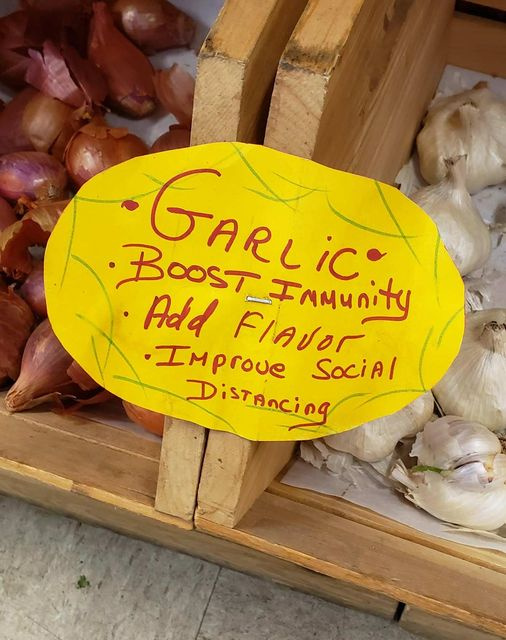 • GARLIC •
• BOOST IMMUNITY
• Add FlAVOR
• IMPROVE SOCIAl
DISTANCING